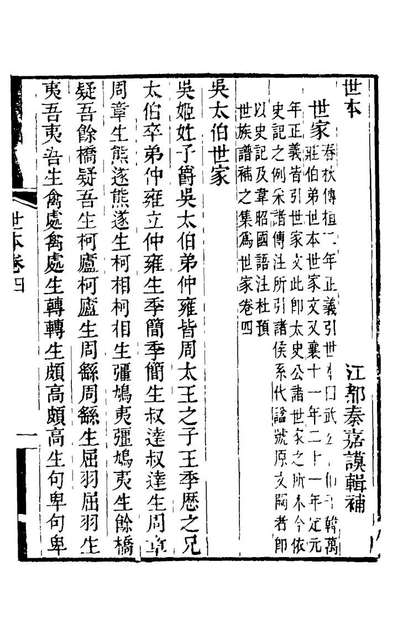 世本
江都秦嘉謨輯補
世家
春秋傳桓二年正義引世本
莊伯弟世本世家文又襄十一年二十一年定元
年正義皆引世家文此即太史公諸世家之所本今依
史記之例采譜傳注所引諸侯系代諡號原文闕者即
以史記及韋昭國語注杜預
世族譜補之集爲世家卷四
吳太伯世家
吳姬姓子爵吳太伯弟仲雍皆周太王之子王季歷之兄
太伯卒弟仲雍立仲雍生季簡季簡生叔達叔達生周章
周章生熊遂熊遂生柯相柯相生彊鳩夷彊鳩夷生餘橋
疑吾餘橋疑吾生柯盧柯盧生周繇周繇生屈羽屈羽生
夷吾夷吾生禽處禽處生轉轉生頗高頗高生句卑句卑
世本卷四
一